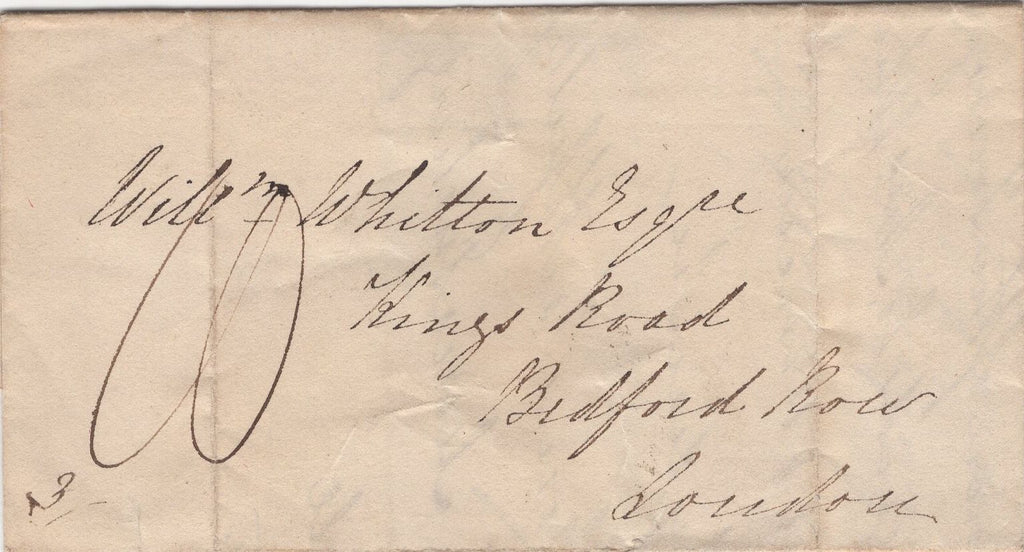 Willm Whitton Esqre
Kings Road
Bedford Row
London
3/-